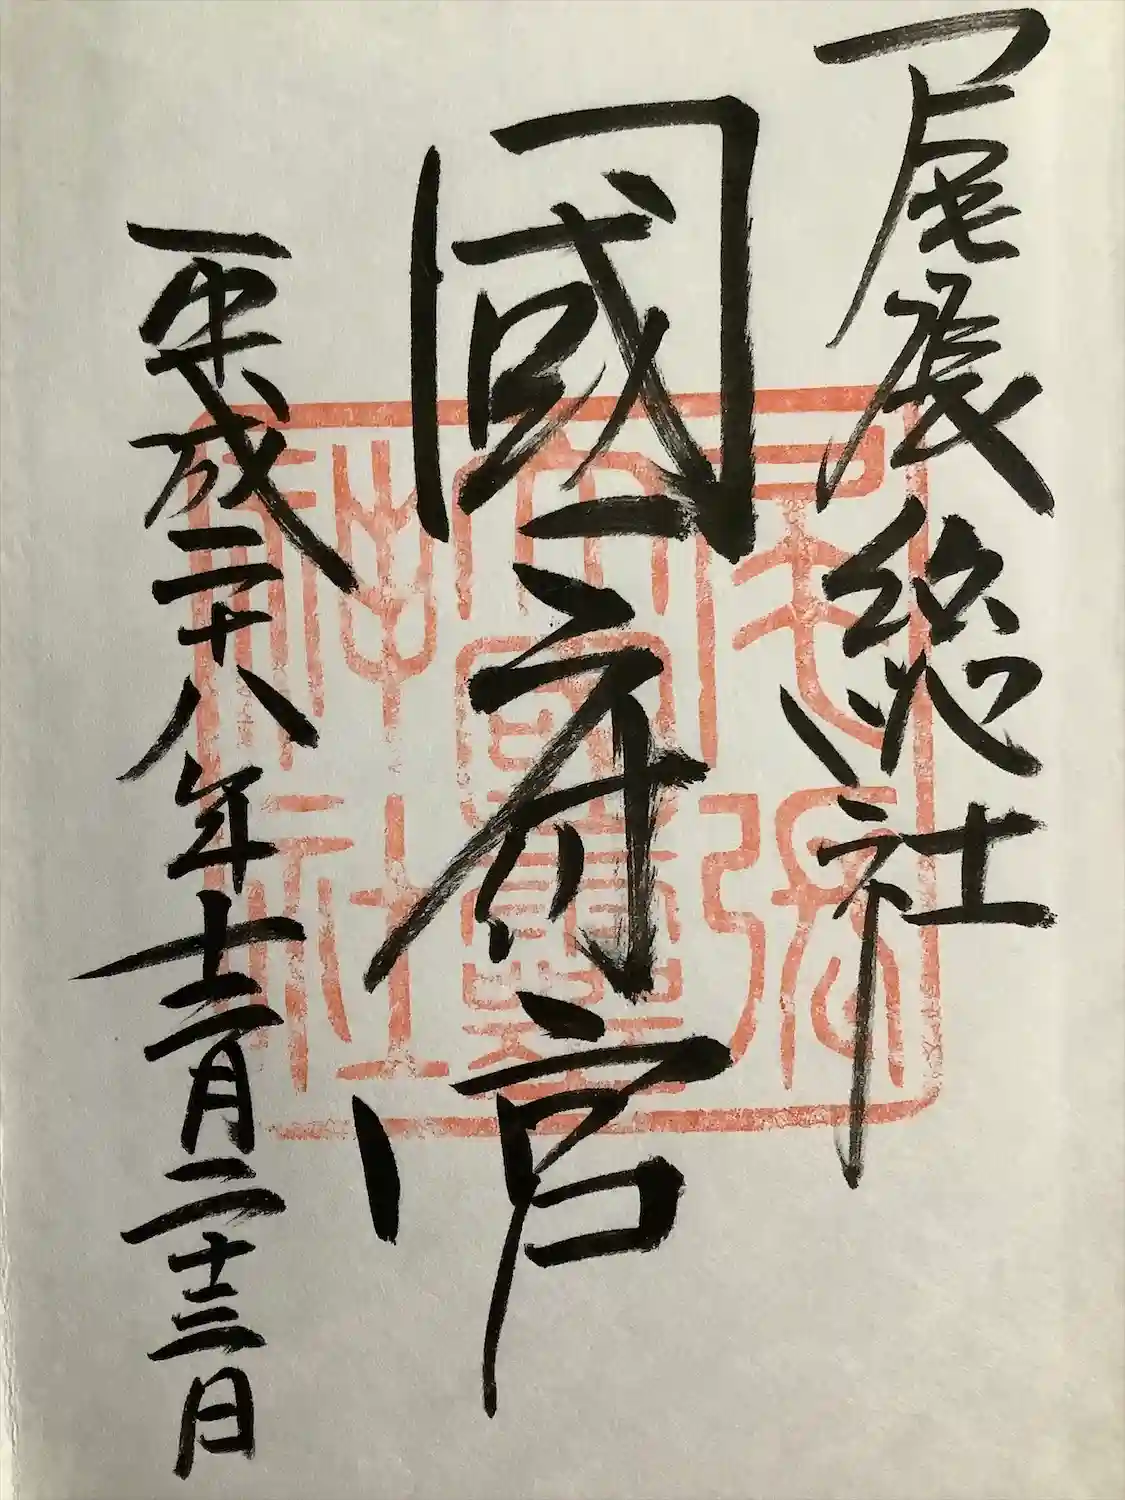 尾張総社
國府宮
平成二十八年十二月二十三日
尾張
大國靈
神社